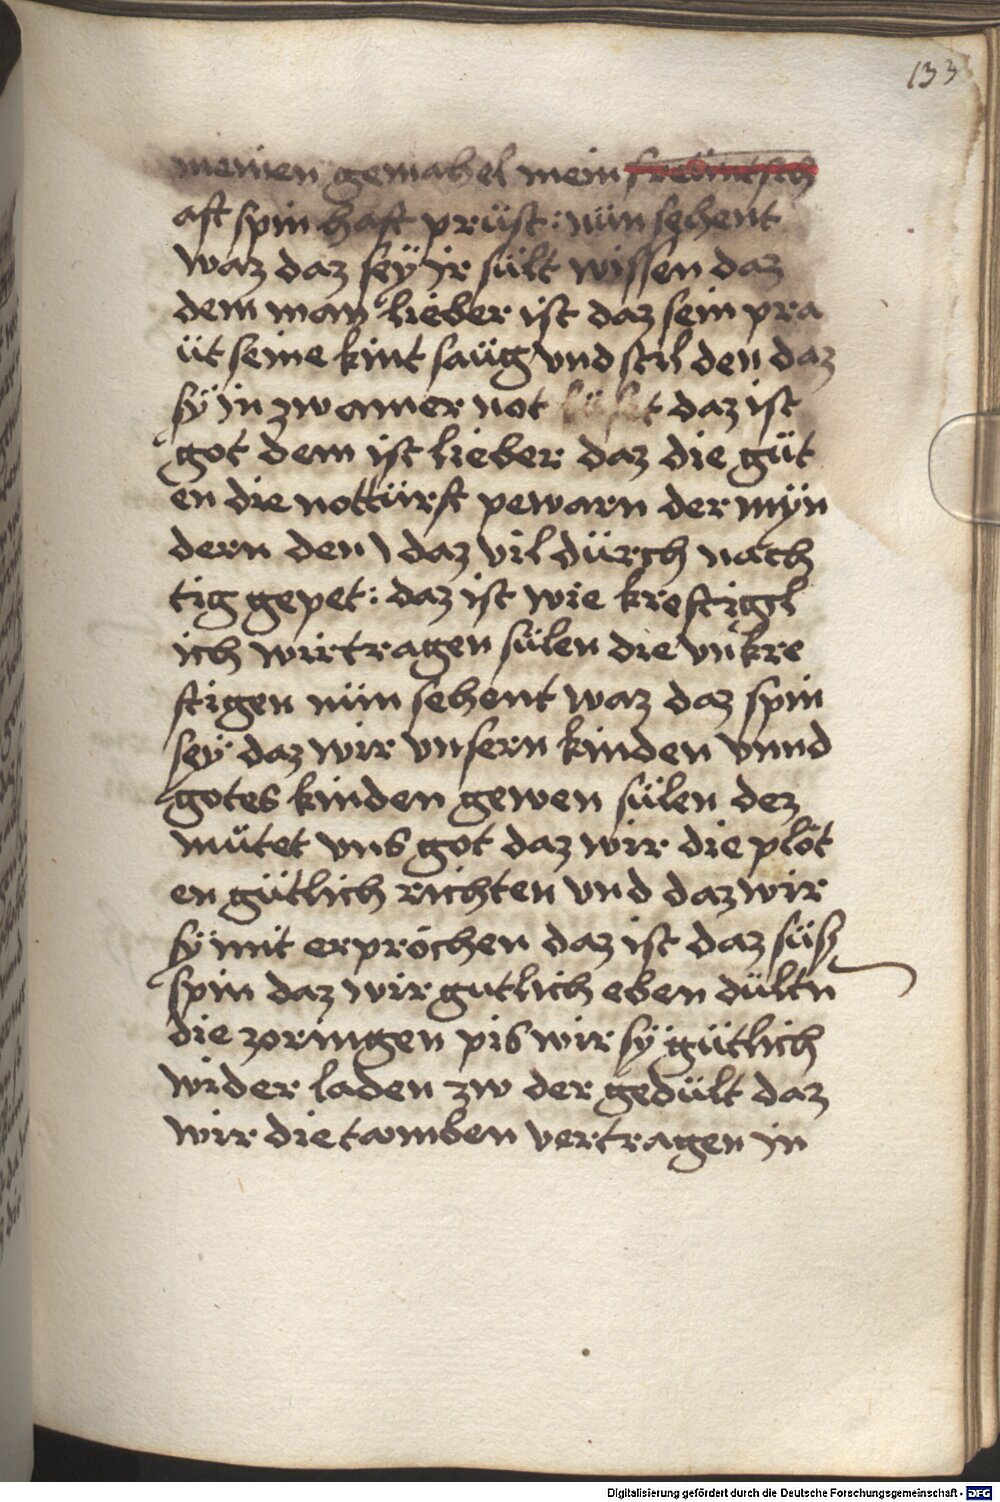 133
meinen gemahel mein freüntsch
aft spin haft prüst : nün sehent
waz daz seÿ ir sült wissen daz
dem man lieber ist daz sein pra
üt seine kint saüg vnd stil den daz
sÿ in zw amer not daz ist
got dem ist lieber daz die güt
en die notturft pewarn der mÿn
dern den daz vil dürch näch
tig gepet : daz ist wie kreftigl
ich wir tragen sülen die vnkre
ftigen nün sehent waz daz spin
seÿ daz wir vnsern kinden vnnd
gotes kinden gewen sülen dez
mütet vns got daz wir die plöt
en gütlich richten vnd daz wir
sÿ mit erpröchen daz ist daz süß
spin daz wir gutlich eben dültn
die zoringen pis wir sÿ gütlich
wider laden zw der gedült daz
wir die tamben vertragen in
Digitalisierung gefördert durch die Deutsche Forschungsgemeinschaft - DFG